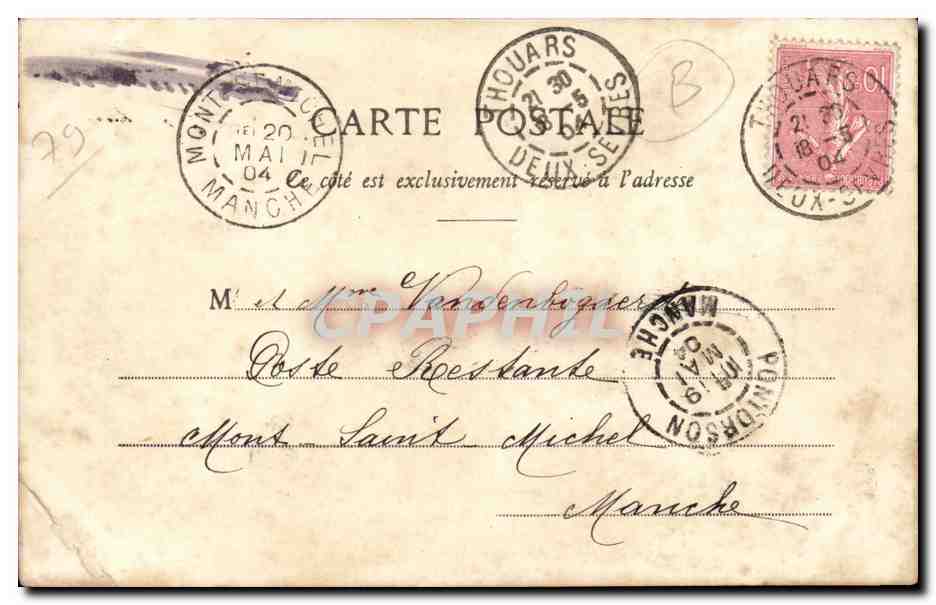 79
B
MONT-ST-MICHEL
20
MAI
04
MANCHE
THOUARS
21 30
18 -5
04
DEUX-SEVRES
THOUARS
21 30
18 -5
04
DEUX-SEVRES
10
CARTE POSTALE
Ce côté est exclusivement réservé à l'adresse
M' et Mme Vandenbogaerd
CPAPHIL
Poste Restante
Mont Saint Michel
Manche
PONTORSON
19
MAI
04
MANCHE